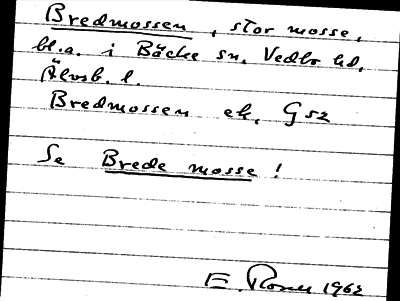 Bredmossen, stor mosse,
bl.a. i Bäcke sn, Vedbo hd,
Älvsb. l.
Bredmossen ek, G52
Se Brede mosse!
E. 1962